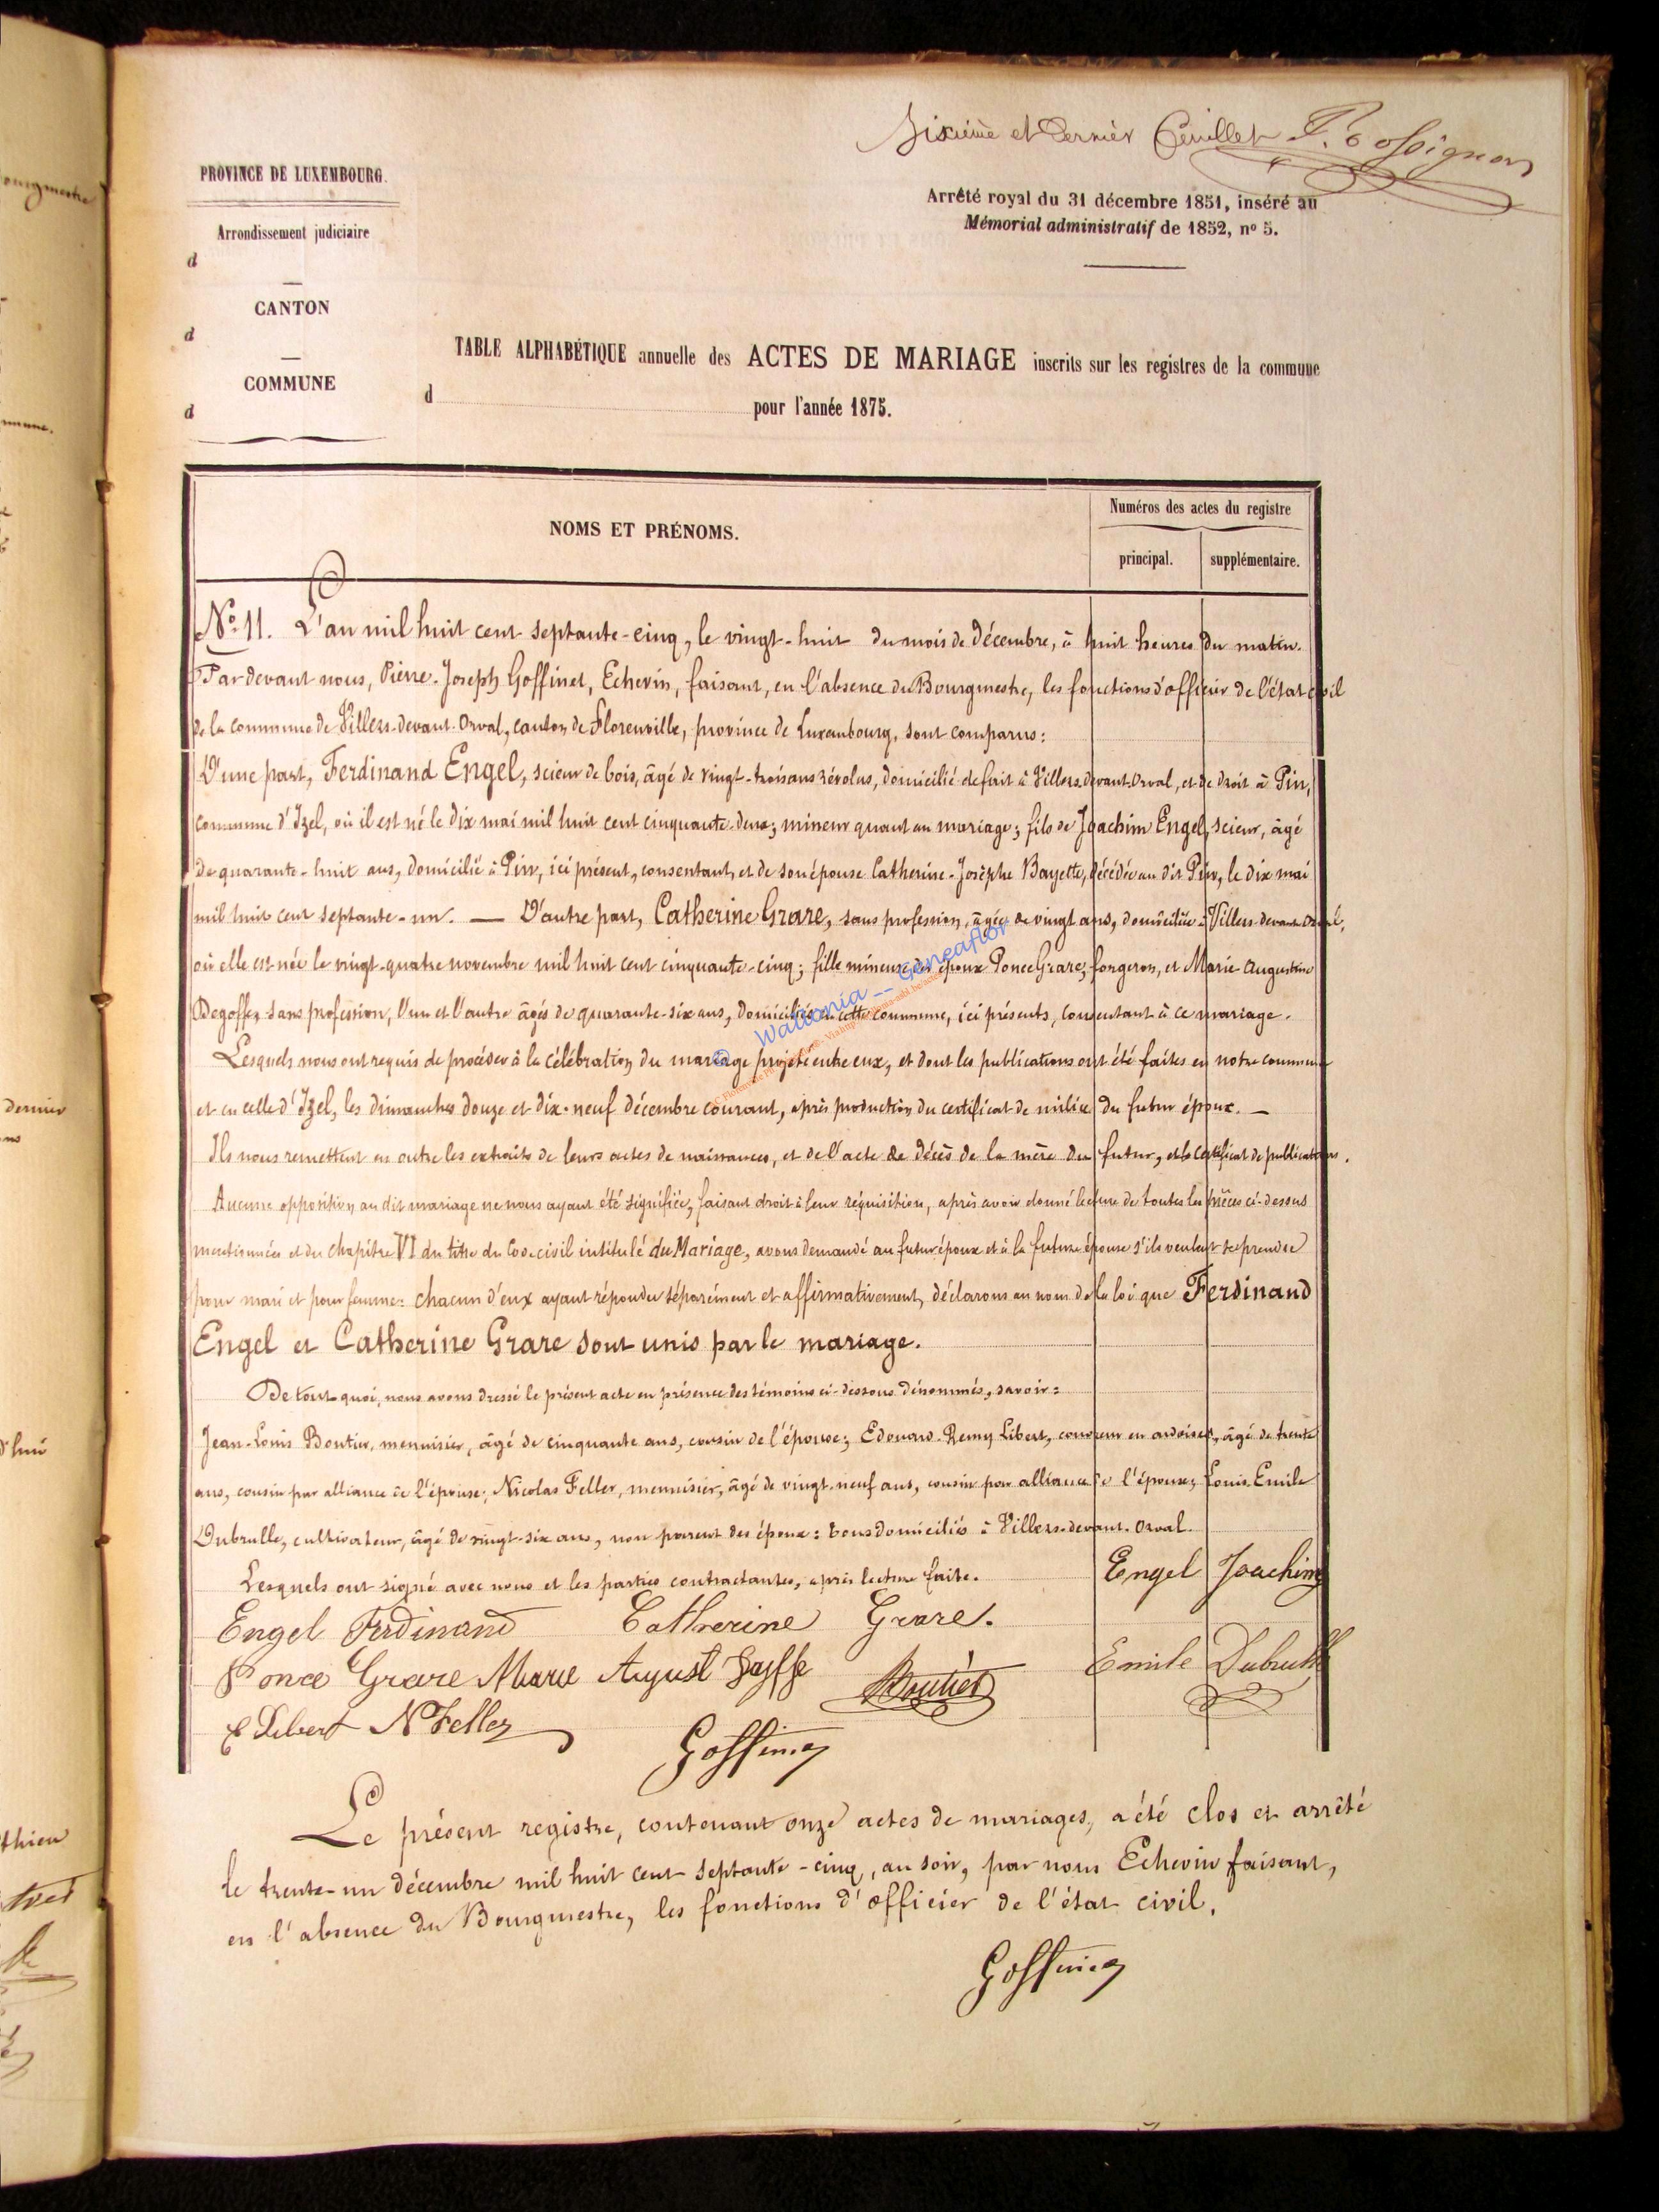 Sixième et dernier feuillet
PROVINCE DE LUXEMBOURG.
Arrondissement judiciaire
d
CANTON
d
COMMUNE
d
Arrêté royal du 31 décembre 1851, inséré au
Mémorial administratif de 1852, nº 5.
TABLE ALPHABÉTIQUE annuelle des ACTES DE MARIAGE inscrits sur les registres de la commune
d pour l'année 1875.
NOMS ET PRÉNOMS.
Numéros des actes du registre
principal.
supplémentaire.
Nº 11. L'an mil huit cent septante-cinq, le vingt-huit du mois de décembre, à huit heures du matin.
Pardevant nous, Pierre-Joseph Goffinet, Echevin, faisant, en l'absence du Bourgmestre, les fonctions d'officier de l'état civil
de la commune de Villers-devant-Orval, canton de Florenville, province de Luxembourg, sont comparus:
D'une part, Ferdinand Engel, scieur de bois, âgé de vingt-trois ans révolus, domicilié de fait à Villers-devant-Orval, et de droit à Pin,
commune d'Izel, où il est né le dix mai mil huit cent cinquante-deux; mineur quant au mariage; fils de Joachim Engel, scieur, âgé
de quarante-huit ans, domicilié à Pin, ici présent, consentant, et de son épouse Catherine-Josèphe Bayette, décédée au dit Pin, le dix mai
mil huit cent septante-un. — D'autre part, Catherine Grare, sans profession, âgée de vingt ans, domiciliée à Villers-devant-Orval,
où elle est née le vingt-quatre novembre mil huit cent cinquante-cinq; fille mineure des époux Ponce Grare, forgeron, et Marie-Augustine
Degoffe, sans profession, l'un et l'autre âgés de quarante-six ans, domiciliés en cette commune, ici présents, consentant à ce mariage.
Lesquels nous ont requis de procéder à la célébration du mariage projeté entre eux, et dont les publications ont été faites en notre commune
et en celle d'Izel, les dimanches douze et dix-neuf décembre courant, après production du certificat de milice du futur époux. —
Ils nous remettent en outre les extraits de leurs actes de naissances, et de l'acte de décès de la mère du futur, et le certificat de publications.
Aucune opposition au dit mariage ne nous ayant été signifiée, faisant droit à leur réquisition, après avoir donné lecture de toutes les pièces ci-dessus
mentionnées et du chapitre VI du titre du Code civil intitulé du Mariage, avons demandé au futur époux et à la future épouse s'ils veulent se prendre
pour mari et pour femme: chacun d'eux ayant répondu séparément et affirmativement, déclarons au nom de la loi que Ferdinand
Engel et Catherine Grare sont unis par le mariage.
De tout quoi, nous avons dressé le présent acte en présence des témoins ci-dessous dénommés, savoir:
Jean-Louis Boutier, menuisier, âgé de cinquante ans, cousin de l'épouse; Edouard-Remy Libert, couvreur en ardoises, âgé de trente
ans, cousin par alliance de l'épouse; Nicolas Feller, menuisier, âgé de vingt-neuf ans, cousin par alliance de l'époux; Louis-Emile
Dubrulle, cultivateur, âgé de vingt-six ans, non parent des époux: tous domiciliés à Villers-devant-Orval.
Lesquels ont signé avec nous et les parties contractantes, après lecture faite.
Engel Joachim
Engel Ferdinand Catherine Grare.
Ponce Grare Marie August Boutier Emile Dubrulle
E Libert N Feller
Goffinet
Le présent registre, contenant onze actes de mariages, a été clos et arrêté
le trente-un décembre mil huit cent septante-cinq, au soir, par nous Echevin faisant,
en l'absence du Bourgmestre, les fonctions d'officier de l'état civil.
Goffinet
© Wallonia -- Geneaflor